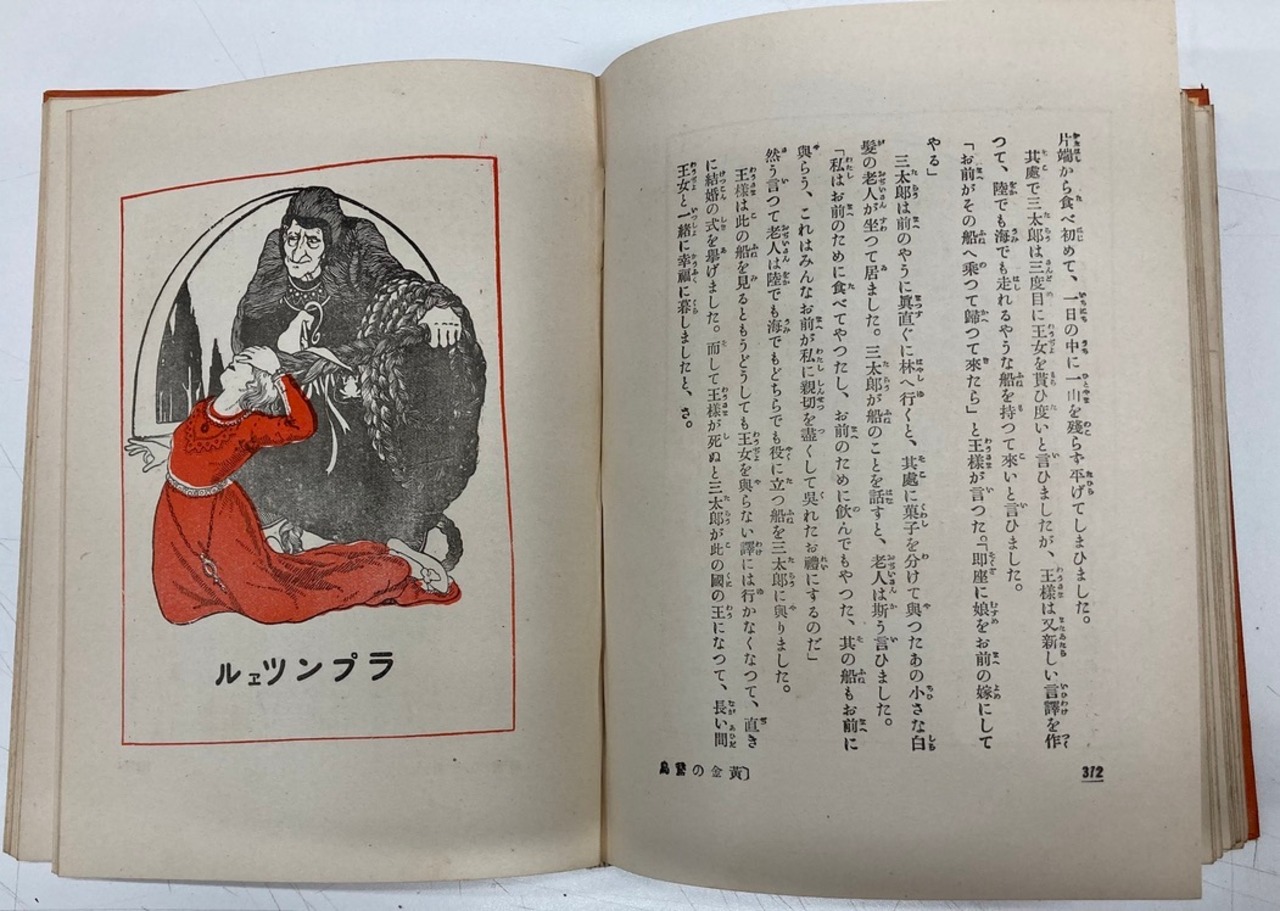 片端から食べ初めて、一日の中に一山を殘らず平げてしまひました。
其處で三太郎は三度目に王女を貰ひ度いと言ひましたが、王樣は又新しい言譯を作
つて、陸でも海でも走れるやうな船を持つて來いと言ひました。
「お前がその船へ乘つて歸つて來たら」と王樣が言つた。「即座に娘をお前の嫁にして
やる」
三太郎は前のやうに眞直ぐに林へ行くと、其處に菓子を分けて與つたあの小さな白
髮の老人が坐つて居ました。三太郎が船のことを話すと、老人は斯う言ひました。
「私はお前のために食べてやつたし、お前のために飮んでもやつた、其の船もお前に
與らう、これはみんなお前が私に親切を盡くして呉れたお禮にするのだ」
然う言つて老人は陸でも海でもどちらでも役に立つ船を三太郎に與りました。
王樣は此の船を見るともうどうしても王女を與らない譯には行かなくなつて、直き
に結婚の式を擧げました。而して王樣が死ぬと三太郎が此の國の王になつて、長い間
王女と一緖に幸福に暮しましたと、さ。
372
〔黃金の鵞鳥
ラプンツェル